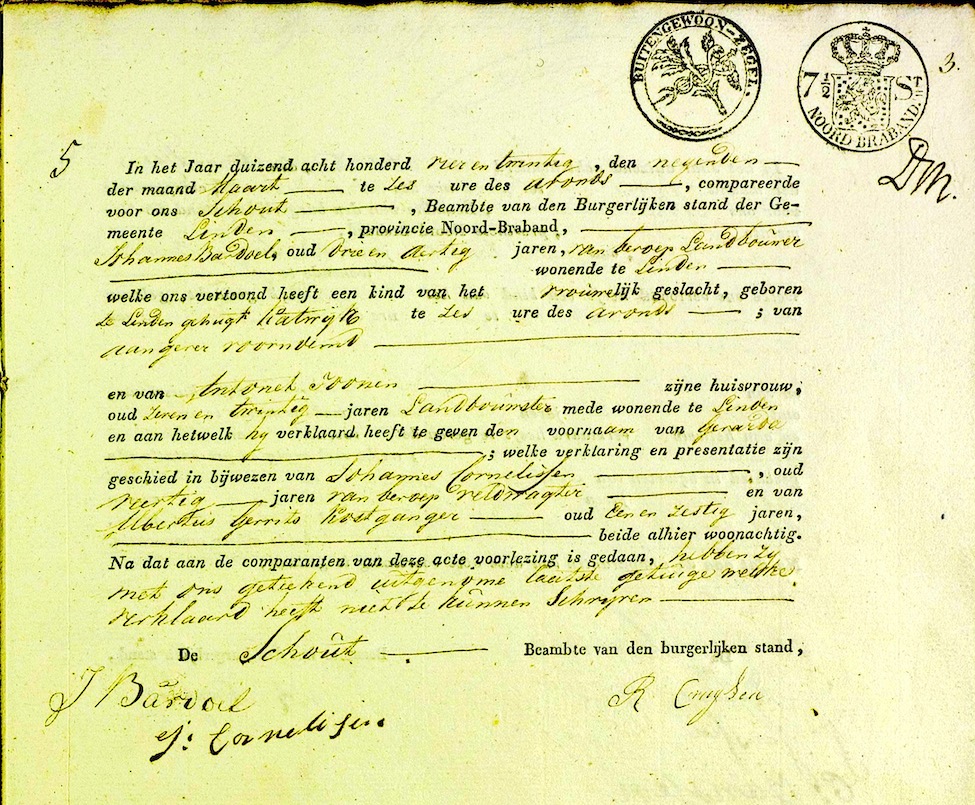 BUITENGEWOON-ZEGEL.
7½ ST
NOORD BRABAND.
3.
5
In het Jaar duizend acht honderd vier en twintig, den negenden
der maand Maart te zes ure des avonds, compareerde
voor ons Schout, Beambte van den Burgerlijken stand der Ge-
meente Linden, provincie Noord-Braband,
Johannes Bardoel, oud drie en dertig jaren, van beroep Landbouwer
wonende te Linden
welke ons vertoond heeft een kind van het vrouwelijk geslacht, geboren
te Linden gehugt Katwijk te zes ure des avonds; van
aangever voornoemd
en van Antonet Joonen zijne huisvrouw,
oud zeven en twintig jaren Landbouwster mede wonende te Linden
en aan hetwelk hy verklaard heeft te geven den voornaam van Gerarda
; welke verklaring en presentatie zijn
geschied in bijwezen van Johannes Cornelissen, oud
veertig jaren van beroep veldwagter en van
Albertus Gerrits Kostganger oud Een en zestig jaren,
beide alhier woonachtig.
Na dat aan de comparanten van deze acte voorlezing is gedaan, hebben zy
met ons getekend uitgenome laatste getuige welke
verklaard heeft niet te kunnen Schryven
De Schout Beambte van den burgerlijken stand,
J Bardoel
R
J: Cornelissen